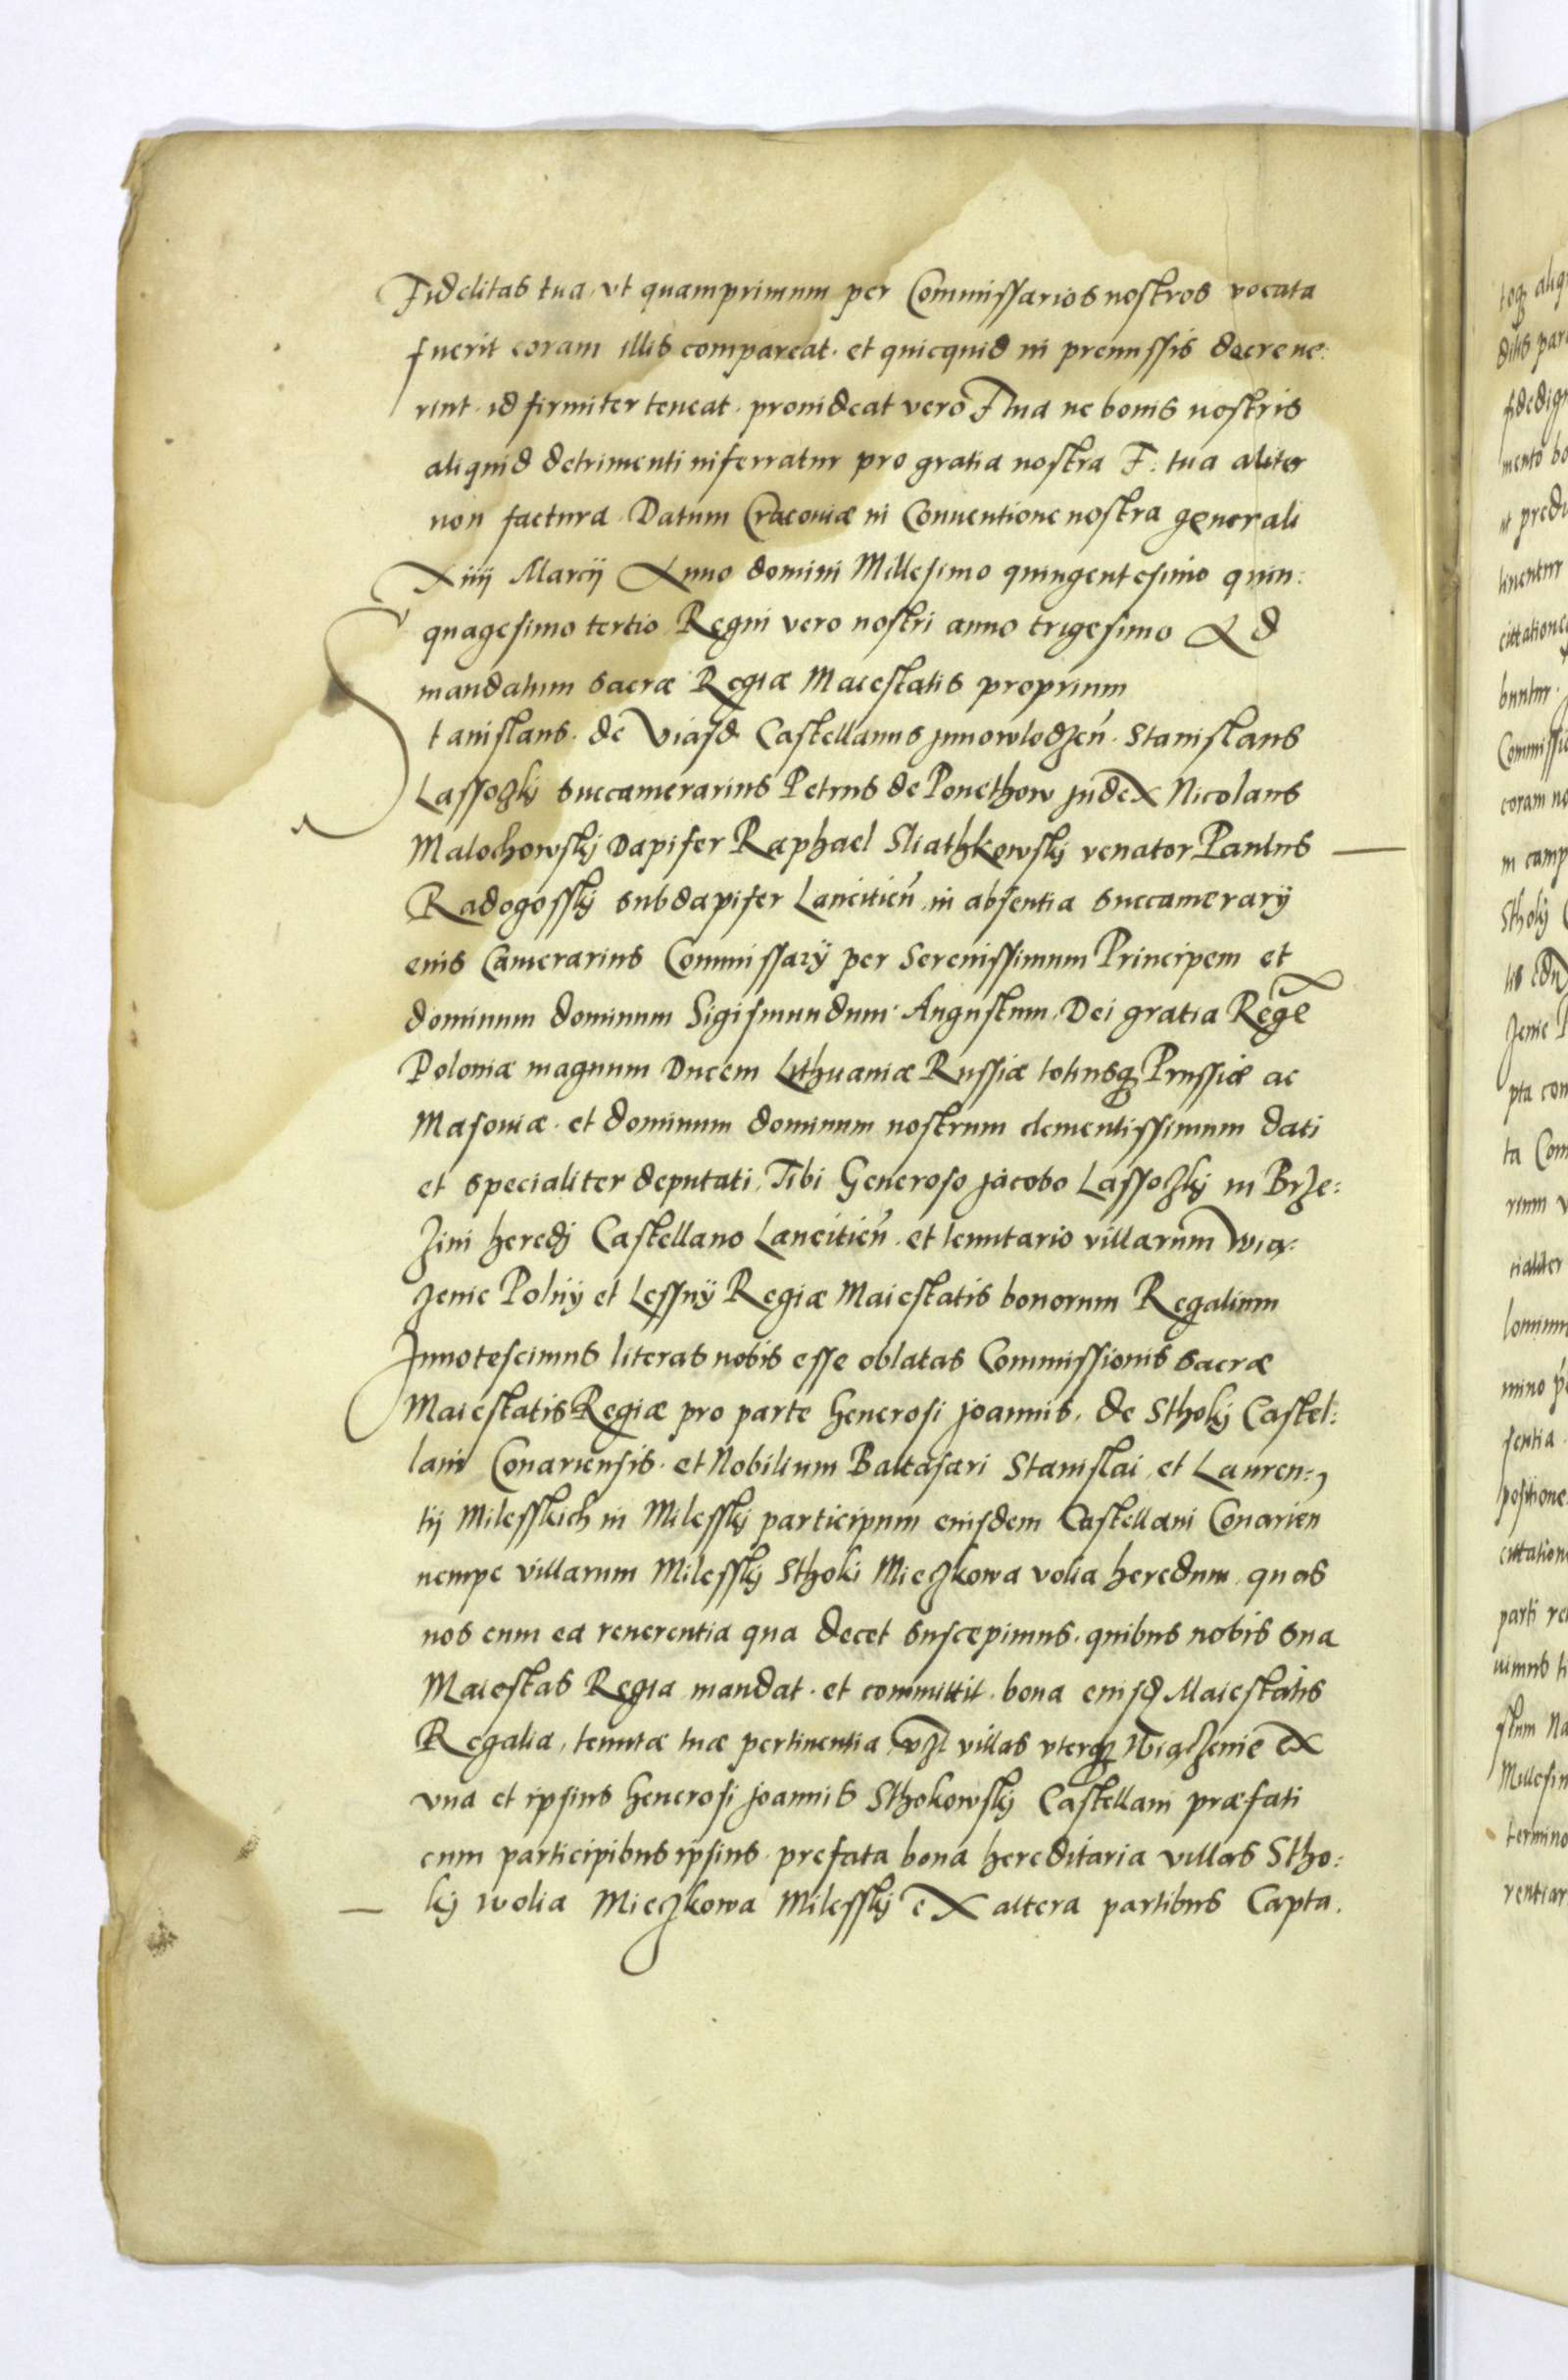 Fidelitas tua, ut quamprimum per Commissarios nostros vocata
fuerit coram illis compareat. et quicquid in premissis decreve:
rint. id firmiter teneat. provideat vero F tua ne bonis nostris
aliquid detrimenti inferratur pro gratia nostra F: tua aliter
non factura. Datum Cracoviæ in Conventione nostra generali
Xiiij Marcij Anno domini Millesimo quingentesimo quin:
quagesimo tertio Regni vero nostri anno trigesimo Ad
mandatum sacræ Regiæ Maiestatis proprium
Stanislaus. de Viasd Castellanus Junowlodzen̄. Stanislaus
Lassozkj succamerarius Petrus de Ponethow judex Nicolaus
Malochowskj Dapifer Raphael Sliathkowskj venator Paulus
Radogosskj subdapifer Lancitien̄. in absentia succamerarij
eius Camerarius Commissarij per Serenissimum Principem et
dominum dominum Sigismundum Augustum. Dei gratia Regē
Poloniæ magnum Ducem Lithuaniæ Russiæ totiusq Prussiæ ac
Masoviæ. et dominum dominum nostrum clementissimum dati
et specialiter deputati, Tibi Generoso jacobo Lassozkj in Brze:
zini heredj Castellano Lancitien̄. et tenutario villarum Wią:
zenie Polnÿ et Lessnÿ Regiæ Maiestatis bonorum Regalium
Innotescimus literas nobis esse oblatas Commissionis sacræ
Maiestatis Regiæ pro parte Generosi joannis, de Stholj Castel:
lani Conariensis. et Nobilium Baltasari Stanislai, et Lauren:
tij Milesskich in Milesskj participum eiusdem Castellani Conarien
nempe villarum Milesskj Sthoki Mieczkowa volia heredum, quas
nos cum ea reverentia qua decet suscepimus. quibus nobis sua
Maiestas Regia mandat. et committit. bona eiusq Maiestatis
Regalia, tenutæ tuæ pertinentia vzl villas uterq Wiązenie ex
una et ipsius Generosi joannis Sthokowskj Castellani præfati
cum participibus ipsius. prefata bona hereditaria villas Stho:
kj wolia Mieczkowa Milesskj ex altera partibus Capta.